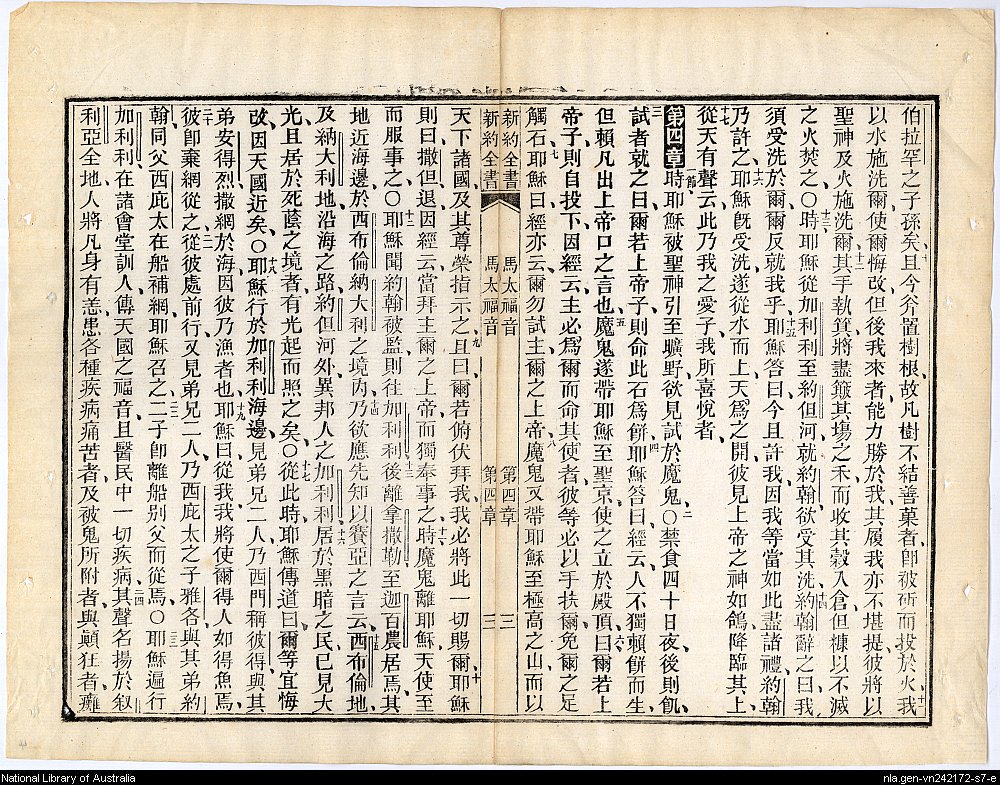 伯拉罕之子孫矣且今斧置樹根故凡樹不結善菓者卽被斫而投於火十一我
以水施洗爾使爾悔改但後我來者能力勝於我其履我亦不堪提彼將以
聖神及火施洗爾十二其手執箕將盡簸其塲之禾而收其穀入倉但糠以不滅
之火焚之〇十三時耶穌從加利利至約但河就約翰欲受其洗十四約翰辭之曰我
須受洗於爾爾反就我乎十五耶穌答曰今且許我因我等當如此盡諸禮約翰
乃許之十六耶穌旣受洗遂從水而上天爲之開彼見上帝之神如鴿降臨其上
十七從天有聲云此乃我之愛子我所喜悅者
第四章一節時耶穌被聖神引至曠野欲見試於魔鬼〇二禁食四十日夜後則飢
三試者就之曰爾若上帝子則命此石爲餅四耶穌答曰經云人不獨賴餅而生
但賴凡出上帝口之言也五魔鬼遂帶耶穌至聖京使之立於殿頂六曰爾若上
帝子則自投下因經云主必爲爾而命其使者彼等必以手扶爾免爾之足
觸石七耶穌曰經亦云爾勿試主爾之上帝八魔鬼又帶耶穌至極高之山而以
新約全書 馬太福音 第四章 三
新約全書 馬太福音 第四章 三
天下諸國及其尊榮指示之九且曰爾若俯伏拜我我必將此一切賜爾十耶穌
則曰撒但退因經云當拜主爾之上帝而獨奉事之十一時魔鬼離耶穌天使至
而服事之〇十二耶穌聞約翰被監則往加利利十三後離拿撒勒至迦百農居焉其
地近海邊於西布倫納大利之境內十四乃欲應先知以賽亞之言云十五西布倫地
及納大利地沿海之路約但河外異邦人之加利利十六居於黑暗之民已見大
光且居於死蔭之境者有光起而照之矣〇十七從此時耶穌傳道曰爾等宜悔
改因天國近矣〇十八耶穌行於加利利海邊見弟兄二人乃西門稱彼得與其
弟安得烈撒網於海因彼乃漁者也十九耶穌曰從我我將使爾得人如得魚焉
二十彼卽棄網從之二一從彼處前行又見弟兄二人乃西庇太之子雅各與其弟約
翰同父西庇太在船補網耶穌召之二二二子卽離船別父而從焉〇二三耶穌遍行
加利利在諸會堂訓人傳天國之福音且醫民中一切疾病二四其聲名揚於叙
利亞全地人將凡身有恙患各種疾病痛苦者及被鬼所附者與顚狂者癱
National Library of Australia
nla.gen-vn242172-s7-e